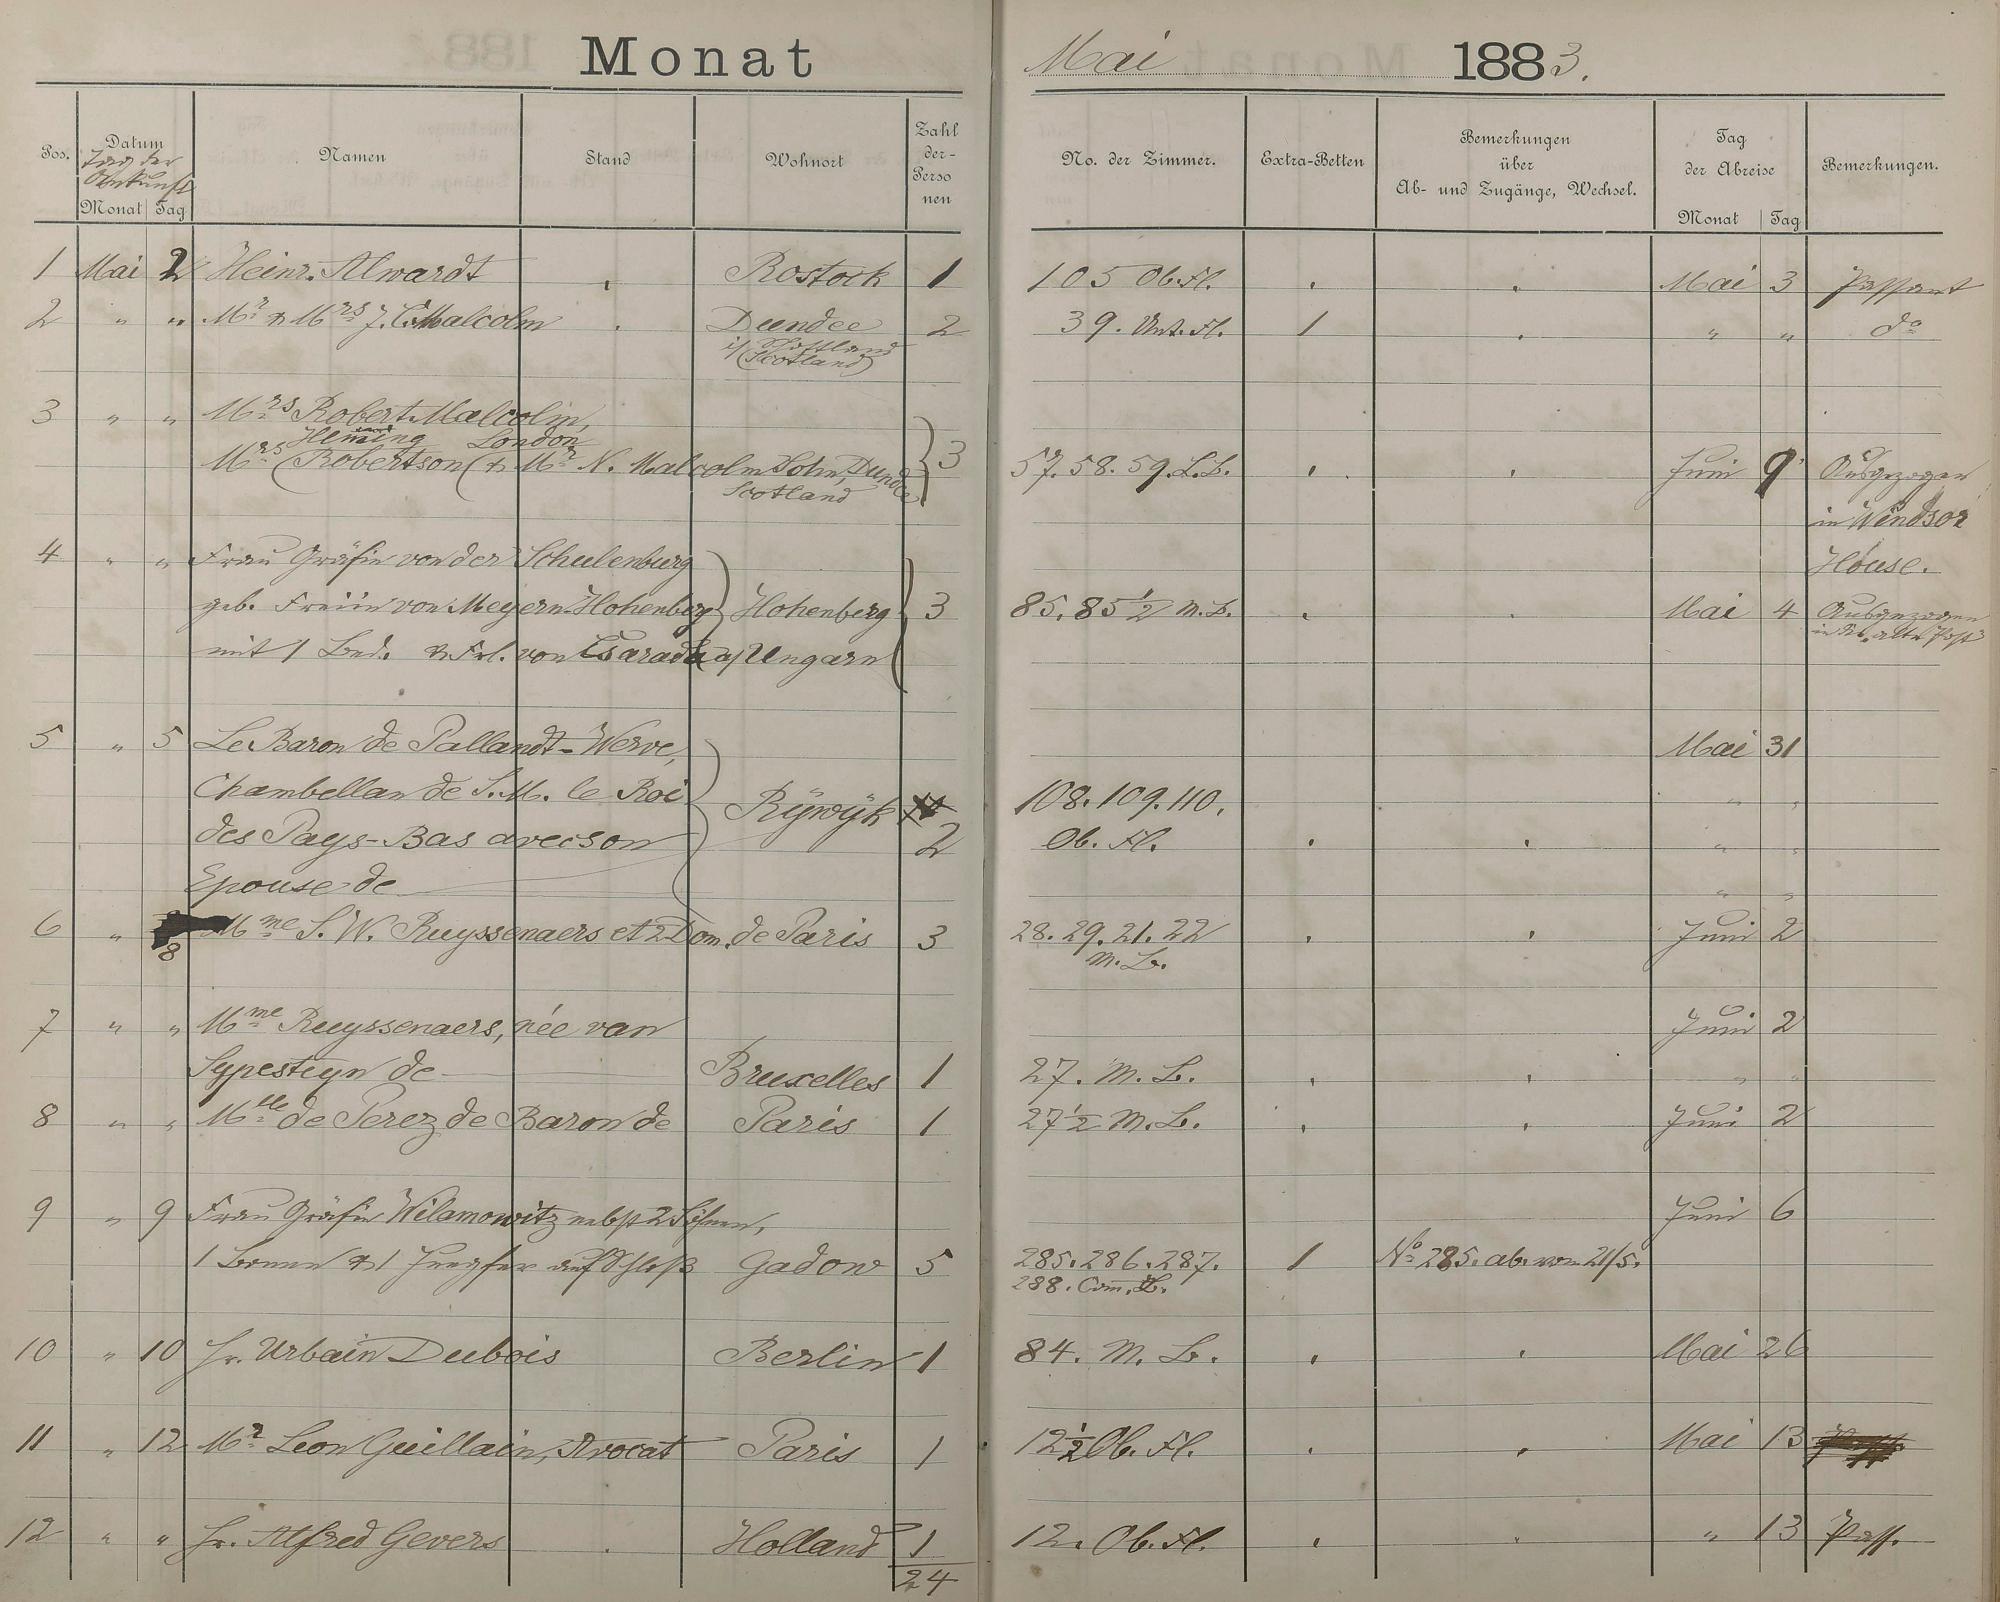 Monat Mai 1883.
Pos. Datum Namen Stand Wohnort Zahl der Personen No. der Zimmer. Extra-Betten Bemerkungen über Ab- und Zugänge, Wechsel. Tag der Abreise Bemerkungen.
Tag der Ankunft
Monat Tag Monat Tag
1 Mai 2 Heinr. Alwardt Rostock 1 105 Ob. Fl. Mai 3 Passant
2 " " Mr & Mrs J. C. Malcolm Dundee 2 39. Unt. Fl. 1 " " do
i/Schottland
(Scotland)
3 " " Mrs Robert Malcolm,
Heming London
Mrs (Robertson (& Mr N. Malcolm Sohn, Dundee 3 57. 58. 59. L.B. Juni 9 Ausgezogen
Scotland
in Windsor
House.
4 " " Frau Gräfin von der Schulenburg
geb. Freiin von Meyern-Hohenberg Hohenberg 3 85. 85 1/2 M. B. Mai 4 Ausgezogen
mit 1 Bed. & Frl. von a/Ungarn
5 " 5 Le Baron de Pallandt-Werve, Mai 31
Chambellan de S. M. le Roi Rÿwÿk 108. 109. 110. " "
des Pays-Bas avec son 2 Ob. Fl. " "
Epouse de " "
6 " 8 Mme S. W. Ruyssenaers et 2 Dom. de Paris 3 28. 29. 21. 22 Juni 2
M. B.
7 " " Mme Ruyssenaers, née van Juni 2
Sypesteyn de Bruxelles 1 27. M. B. " "
8 " " Mlle de Perez de Baron de Paris 1 27 1/2 M. B. Juni 2
9 " 9 Frau Gräfin Wilamowitz nebst 2 Söhnen, Juni 6
1 Bonne & 1 Jungfer auf Schloß Gadow 5 285. 286. 287. 1 No 285. ab. vom 21/5.
288. Com. B.
10 " 10 Hr. Urbain Dubois Berlin 1 84. M. B. Mai 26
11 " 12 Mr Leon Guillain, Avocat Paris 1 12 1/2 Ob. Fl. Mai 13
12 " " Hr. Alfred Gevers Holland 1 12. Ob. Fl. " 13 Pass.
24